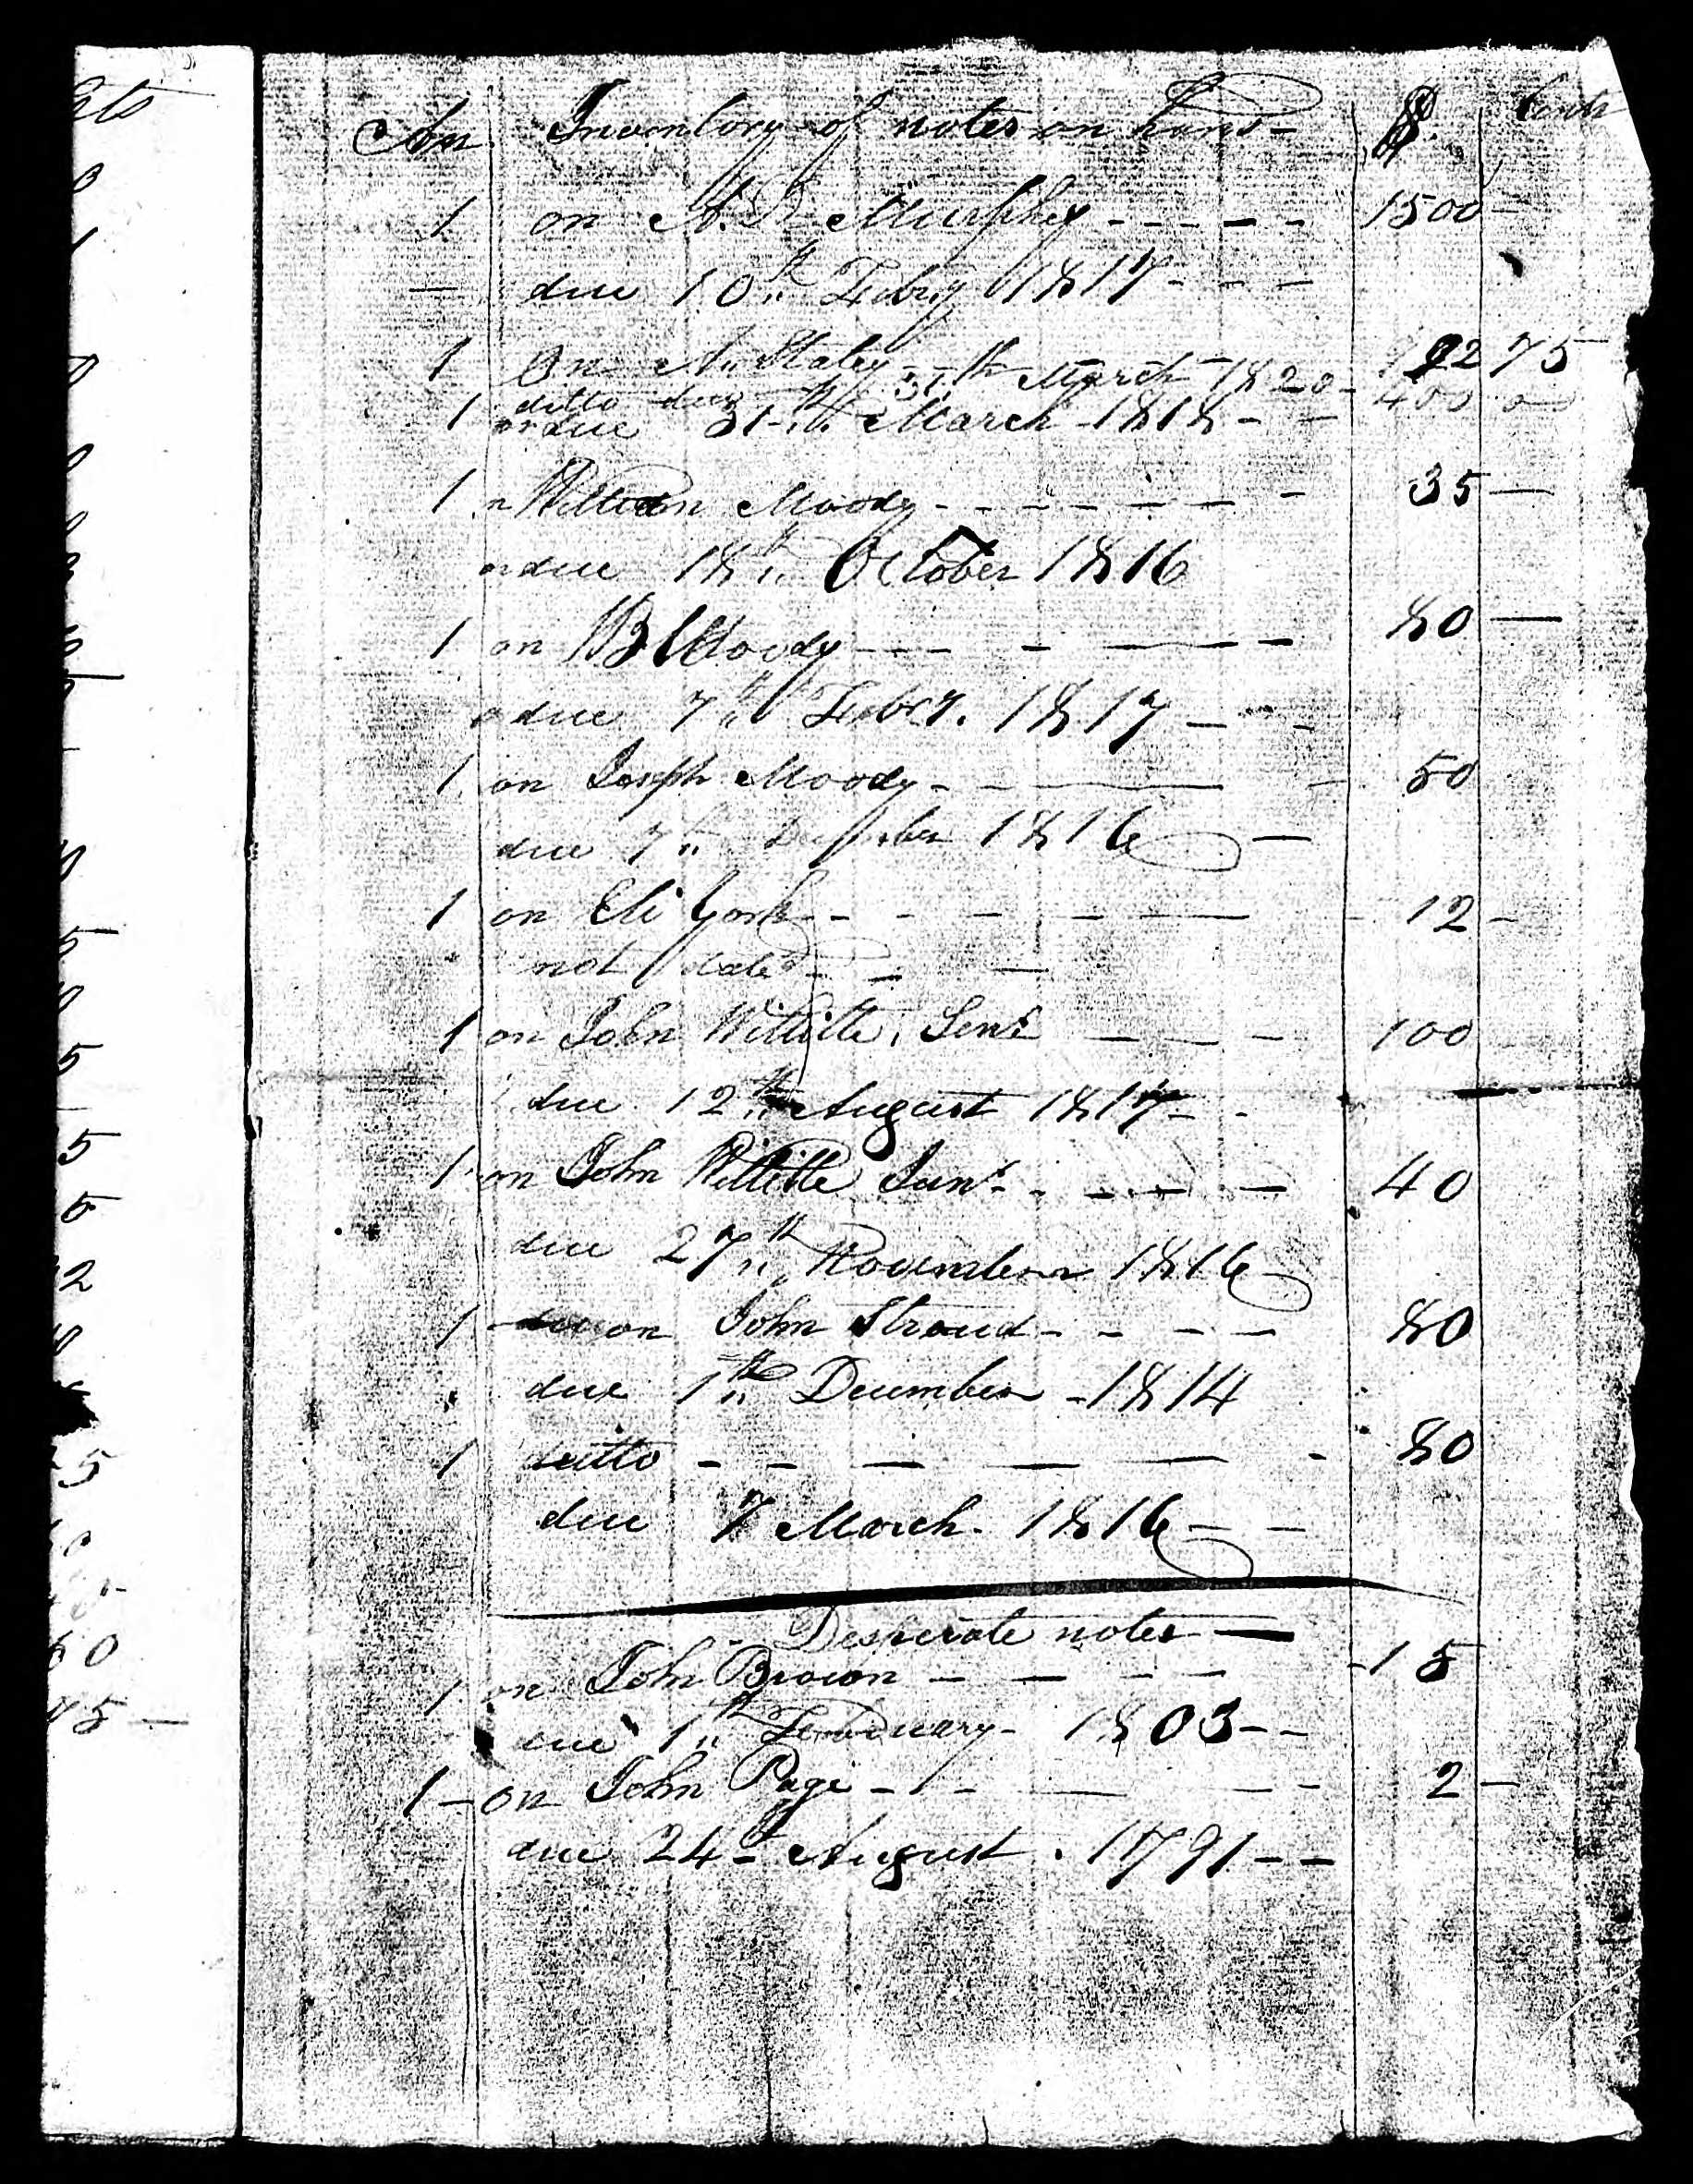 Inventory of notes on hand $ Cents
1 on A. D. Murphey 1500
due 10th Febry 1817
1 On A. Staley 75
1 ditto due 31th March 1820 400
due 31th March 1818
1 William Moody 35
due 18th October 1816
1 on B Moody 80
due 7th Febry. 1817
1 on Joseph Moody 50
due 7th 1816
1 on Eli York 12
not dated
1 on John Willitte, Senr 100
due 12th August 1817
1 on John Willitte Junr 40
due 27th November 1816
1 on John Stroud 80
due 1th December 1814
1 ditto 80
due 7 March. 1816
Desperate notes
1 on John Brown 15
due 1th February 1803
1 on John Page 2
due 24th August. 1791